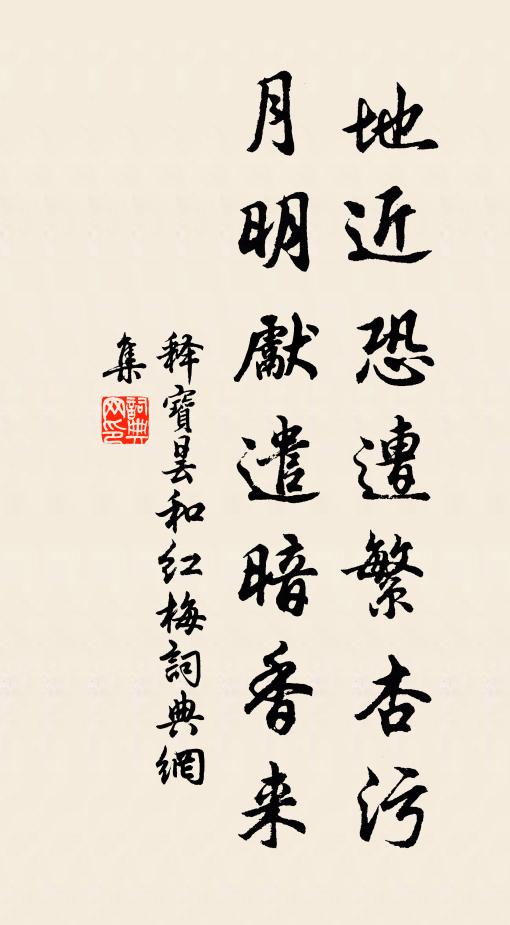 地近恐遭繁杏污
月明獻遣暗香来
释寶昙和红梅詞典網
集
詞典网印